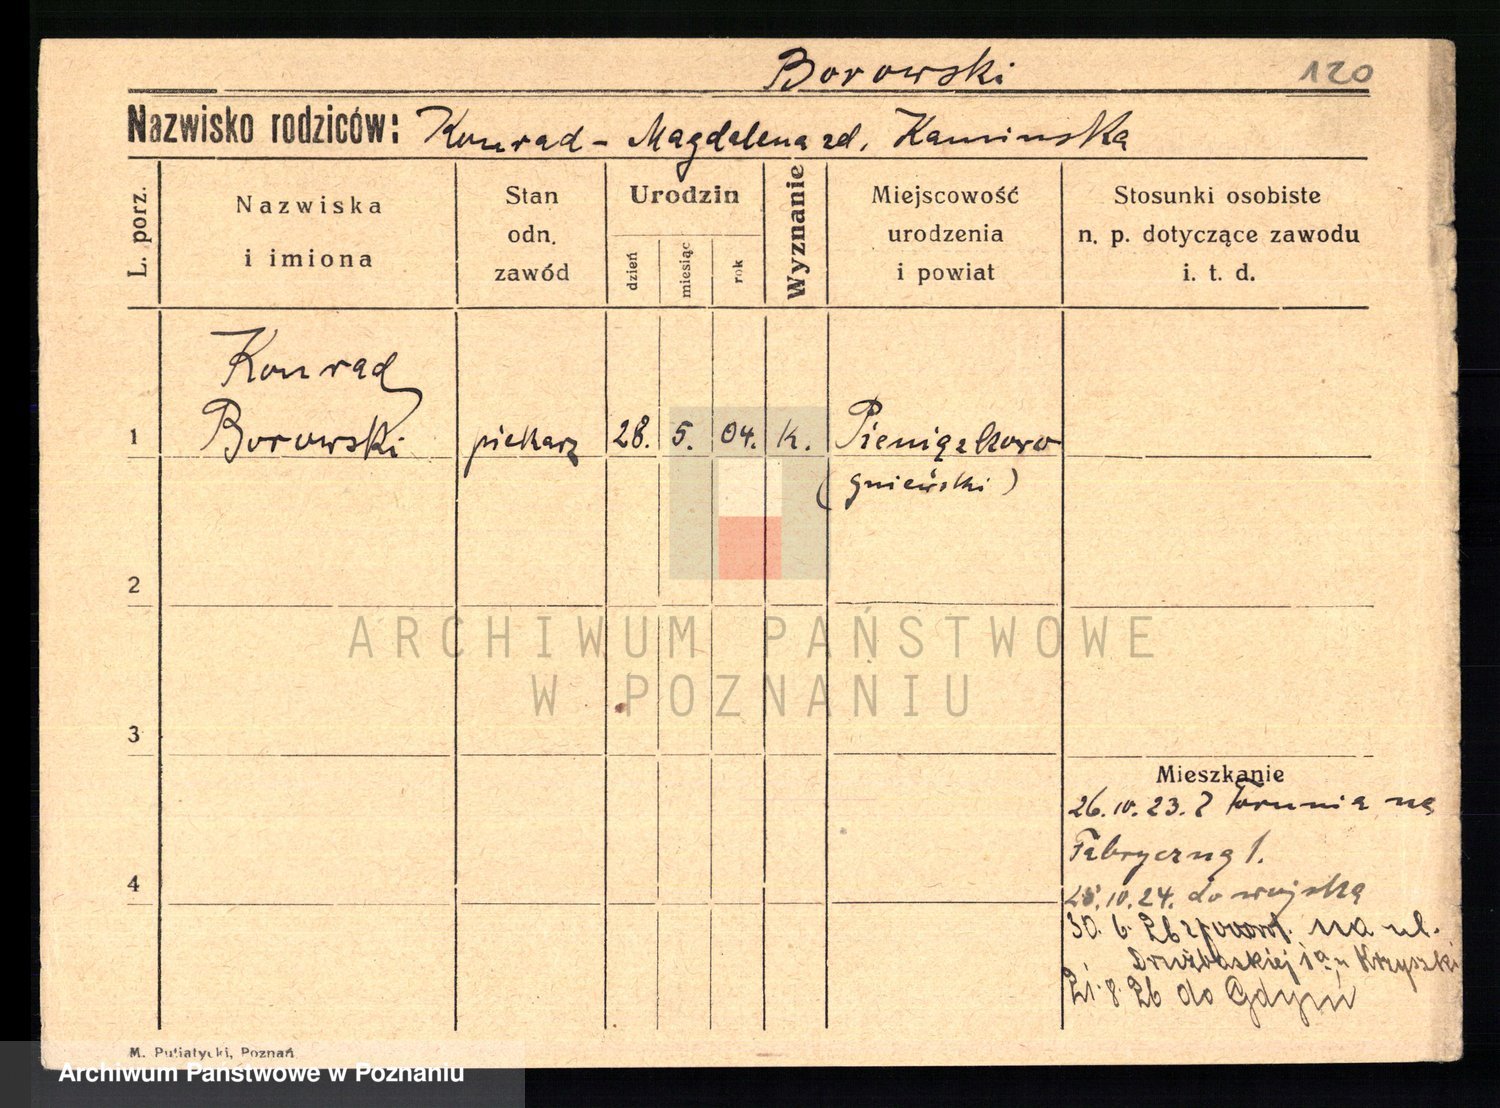 Borowski
120
Nazwisko rodziców: Konrad - Magdalena zd. Kaminska
L. porz.
Nazwiska
i imiona
Stan
odn.
zawód
Urodzin
dzień
miesiąc
rok
Wyznanie
Miejscowość
urodzenia
i powiat
Stosunki osobiste
n. p. dotyczące zawodu
i. t. d.
Konrad
1 Borowski piekarz 28. 5. 04. k. Pieniążkowo
(gnieński)
2
ARCHIWUM PAŃSTWOWE
W POZNANIU
3
Mieszkanie
26.10.23. Z Torunia na
Fabryczną 1.
4
28.10.24. do wojska
30. 6. 26 na ul.
Drużbackiej 1a u
21.8.26 do Gdyni
M. Putiatycki, Poznań
Archiwum Państwowe w Poznaniu